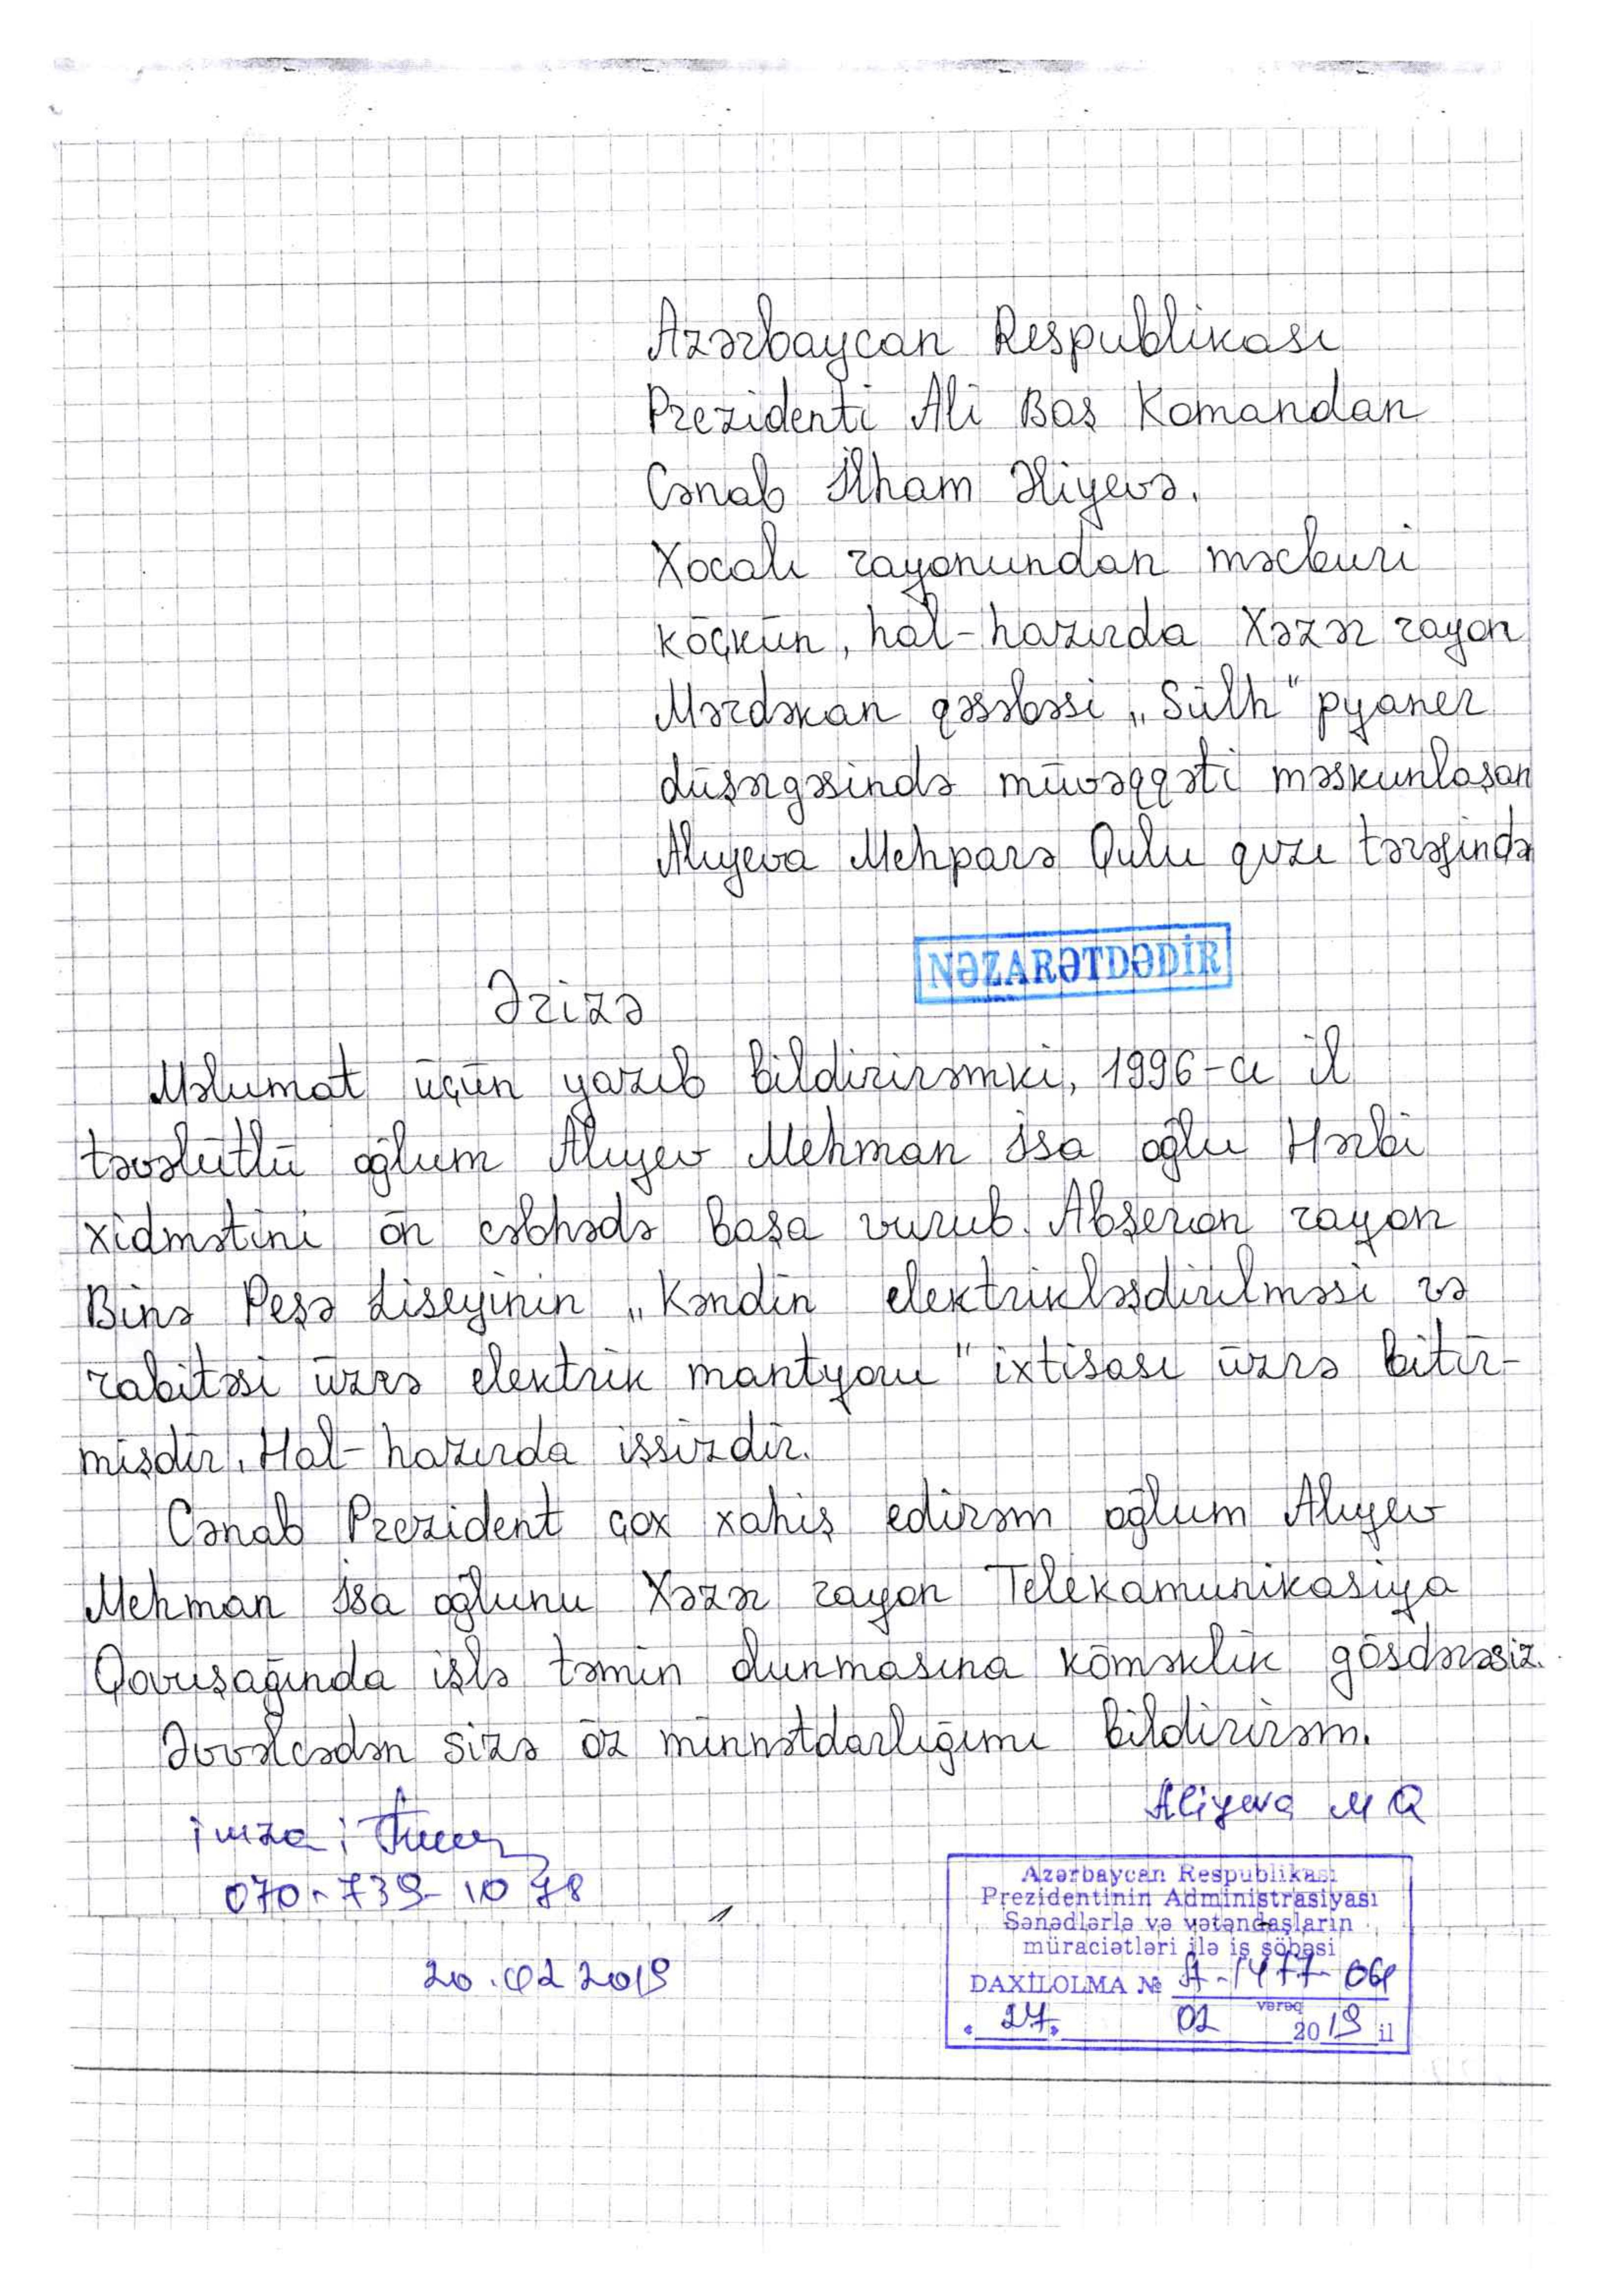 Azərbaycan Respublikası
Prezidenti Ali Baş Komandan
Cənab İlham Əliyevə.
Xocalı rayonundan məcburi
köçkün, hal-hazırda Xəzər rayon
Mərdəkan qəsəbəsi „Sülh" pyaner
düşərgəsində müvəqqəti məskunlaşan
Alıyeva Mehparə Qulu qızı tərəfində
NƏZARƏTDƏDİR
Ərizə
Məlumat üçün yazıb bildirirəmki, 1996-cı il
təvəlütlü oğlum Alıyev Mehman İsa oğlu Hərbi
xidmətini ön cəbhədə başa vurub. Abşeron rayon
Binə Peşə Liseyinin „Kəndin elektrikləşdirilməsi və
rabitəsi üzrə elektrik mantyoru" ixtisası üzrə bitir-
mişdir. Hal-hazırda işsizdir.
Cənab Prezident çox xahiş edirəm oğlum Alıyev
Mehman İsa oğlunu Xəzər rayon Telekamunikasiya
Qovuşağında işlə təmin olunmasına köməklik gösdərəsiz.
Əvvəlcədən sizə öz minnətdarlığımı bildirirəm.
Aliyeva M Q
imza:
070-739-10 78
20.02 2019
Azərbaycan Respublikası
Prezidentinin Administrasiyası
Sənədlərlə və vətəndaşların
müraciətləri ilə iş şöbəsi
DAXİLOLMA № A-1477-06
vərəq
« 27 » 02 2019 il